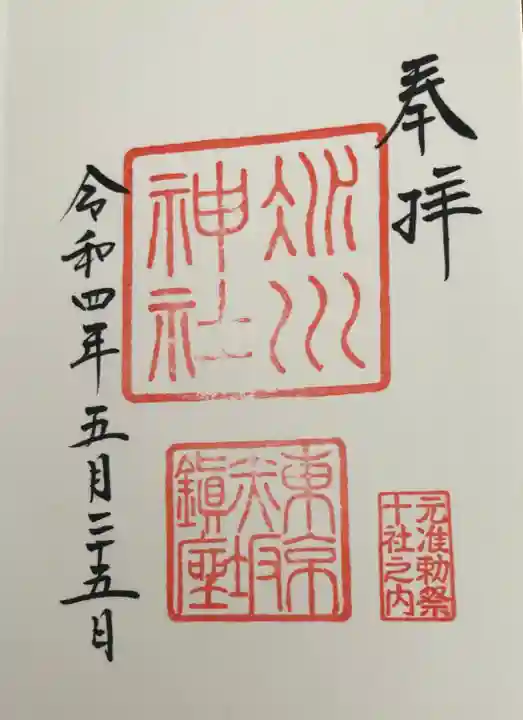 奉拝
氷川
神社
東京
赤坂
鎭座
元准勅祭
十社之内
令和四年五月二十五日